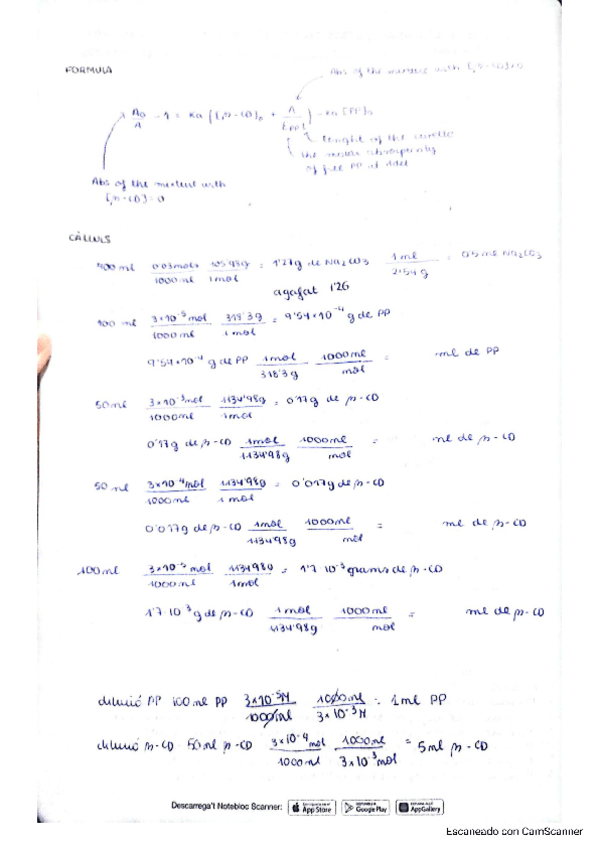 FORMULA
Abs of the mixture with [β-CD]≠0
A₀/A - 1 = Ka ([β-CD]₀ + A/(εPP l)) - Ka [PP]₀
lenght of the cuvette
the molar absorptivity
of free PP at
Abs of the mixture with
[β-CD]=0
CÀLCULS
400 ml 0'03 mols/1000 ml 105'98g/1 mol = 1'27g de Na₂CO₃ 1 ml/2'54 g = 0'5 ml Na₂CO₃
agafat 1'26
100 ml 3×10⁻⁵ mol/1000 ml 318'3g/1 mol = 9'54×10⁻⁴ g de PP
9'54×10⁻⁴ g de PP 1 mol/318'3g 1000 ml/mol = ml de PP
50 ml 3×10⁻³ mol/1000 ml 1134'98g/1 mol = 0'17g de β-CD
0'17g de β-CD 1 mol/1134'98g 1000 ml/mol = ml de β-CD
50 ml 3×10⁻⁴ mol/1000 ml 1134'98g/1 mol = 0'017g de β-CD
0'017g de β-CD 1 mol/1134'98g 1000 ml/mol = ml de β-CD
100 ml mol/1000 ml 1mol = 1'7 10⁻³ grams de β-CD
1'7 10⁻³ g de β-CD 1 mol/1134'98g 1000 ml/mol = ml de β-CD
dilució PP 100 ml PP 3×10⁻⁵M/1000 ml 1000 ml/3×10⁻³M = 1 ml PP
dilució β-CD 50 ml β-CD 3×10⁻⁴ mol/1000 ml 1000 ml/3×10⁻³ mol = 5 ml β-CD
Descarrega't Notebloc Scanner: App Store Google Play AppGallery
Escaneado con CamScanner